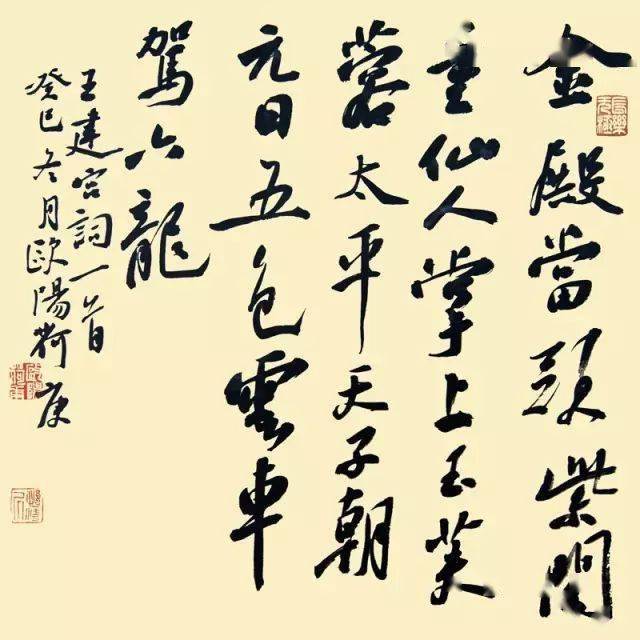 金殿當頭紫閣
重仙人掌上玉芙
蓉太平天子朝
元日五色雲車
駕六龍
王建宮詞一首
癸巳冬月歐陽荷庚